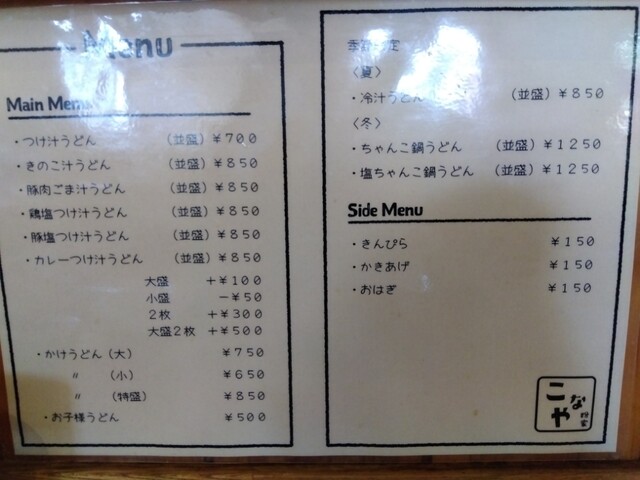 Menu
Main Menu
・つけ汁うどん (並盛) ¥700
・きのこ汁うどん (並盛) ¥850
・豚肉ごま汁うどん (並盛) ¥850
・鶏塩つけ汁うどん (並盛) ¥850
・豚塩つけ汁うどん (並盛) ¥850
・カレーつけ汁うどん (並盛) ¥850
大盛 +¥100
小盛 -¥50
2枚 +¥300
大盛2枚 +¥500
・かけうどん (大) ¥750
〃 (小) ¥650
〃 (特盛) ¥850
・お子様うどん ¥500
季節限定
〈夏〉
・冷汁うどん (並盛) ¥850
〈冬〉
・ちゃんこ鍋うどん (並盛) ¥1250
・塩ちゃんこ鍋うどん (並盛) ¥1250
Side Menu
・きんぴら ¥150
・かきあげ ¥150
・おはぎ ¥150
こなや